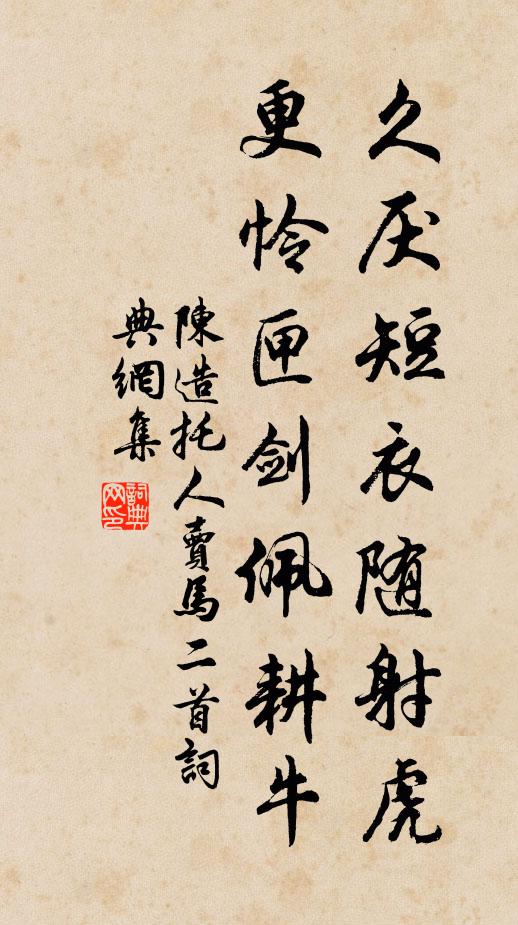 久厌短衣随射虎
更怜匣剑佩耕牛
陳造托人賣馬二首詞
典網集
詞典网印